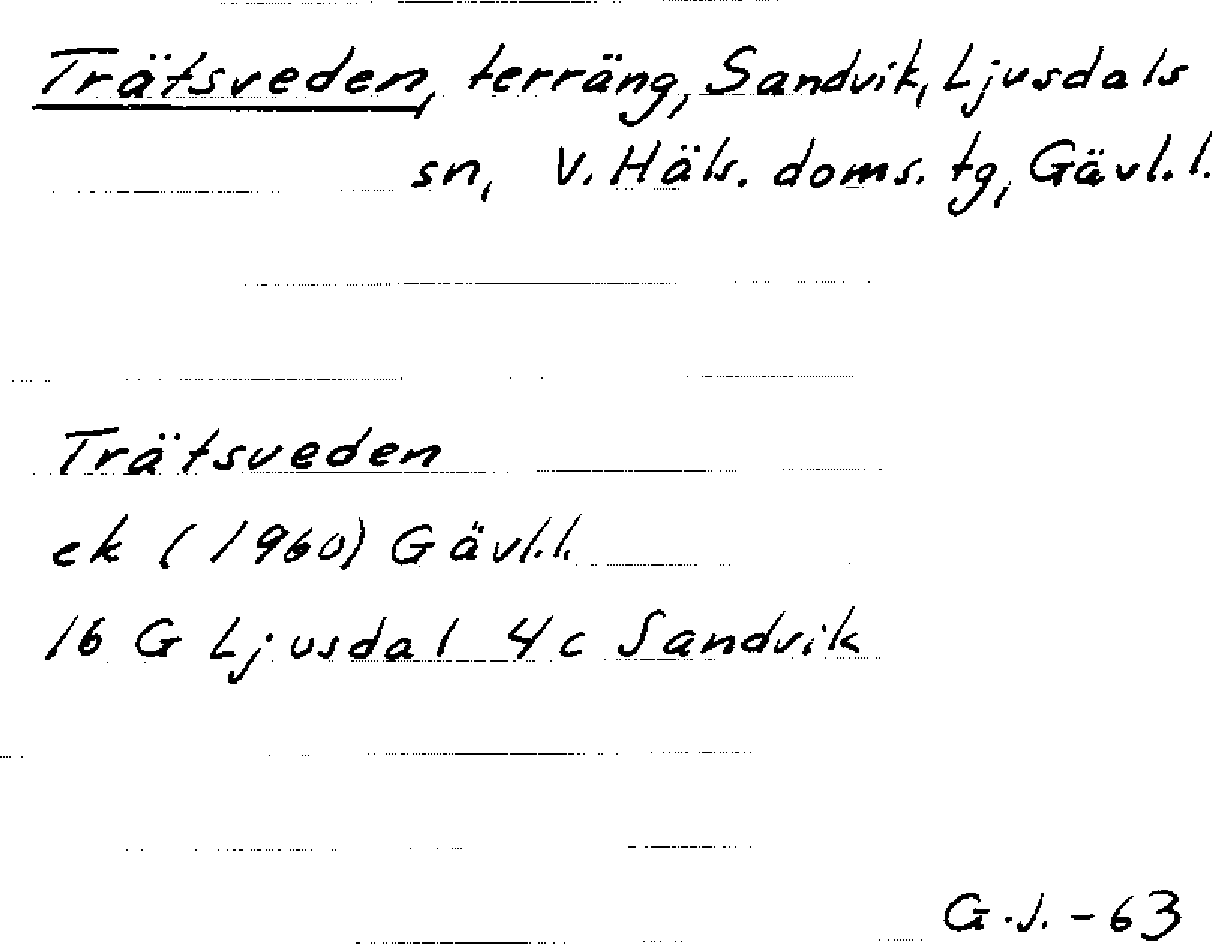 Trätsveden, terräng, Sandvik, Ljusdals
sn, V. Häls. doms. tg, Gävl. l.
Trätsveden
ek (1960) Gävl. l.
16 G Ljusdal 4c Sandvik
G. J. - 63